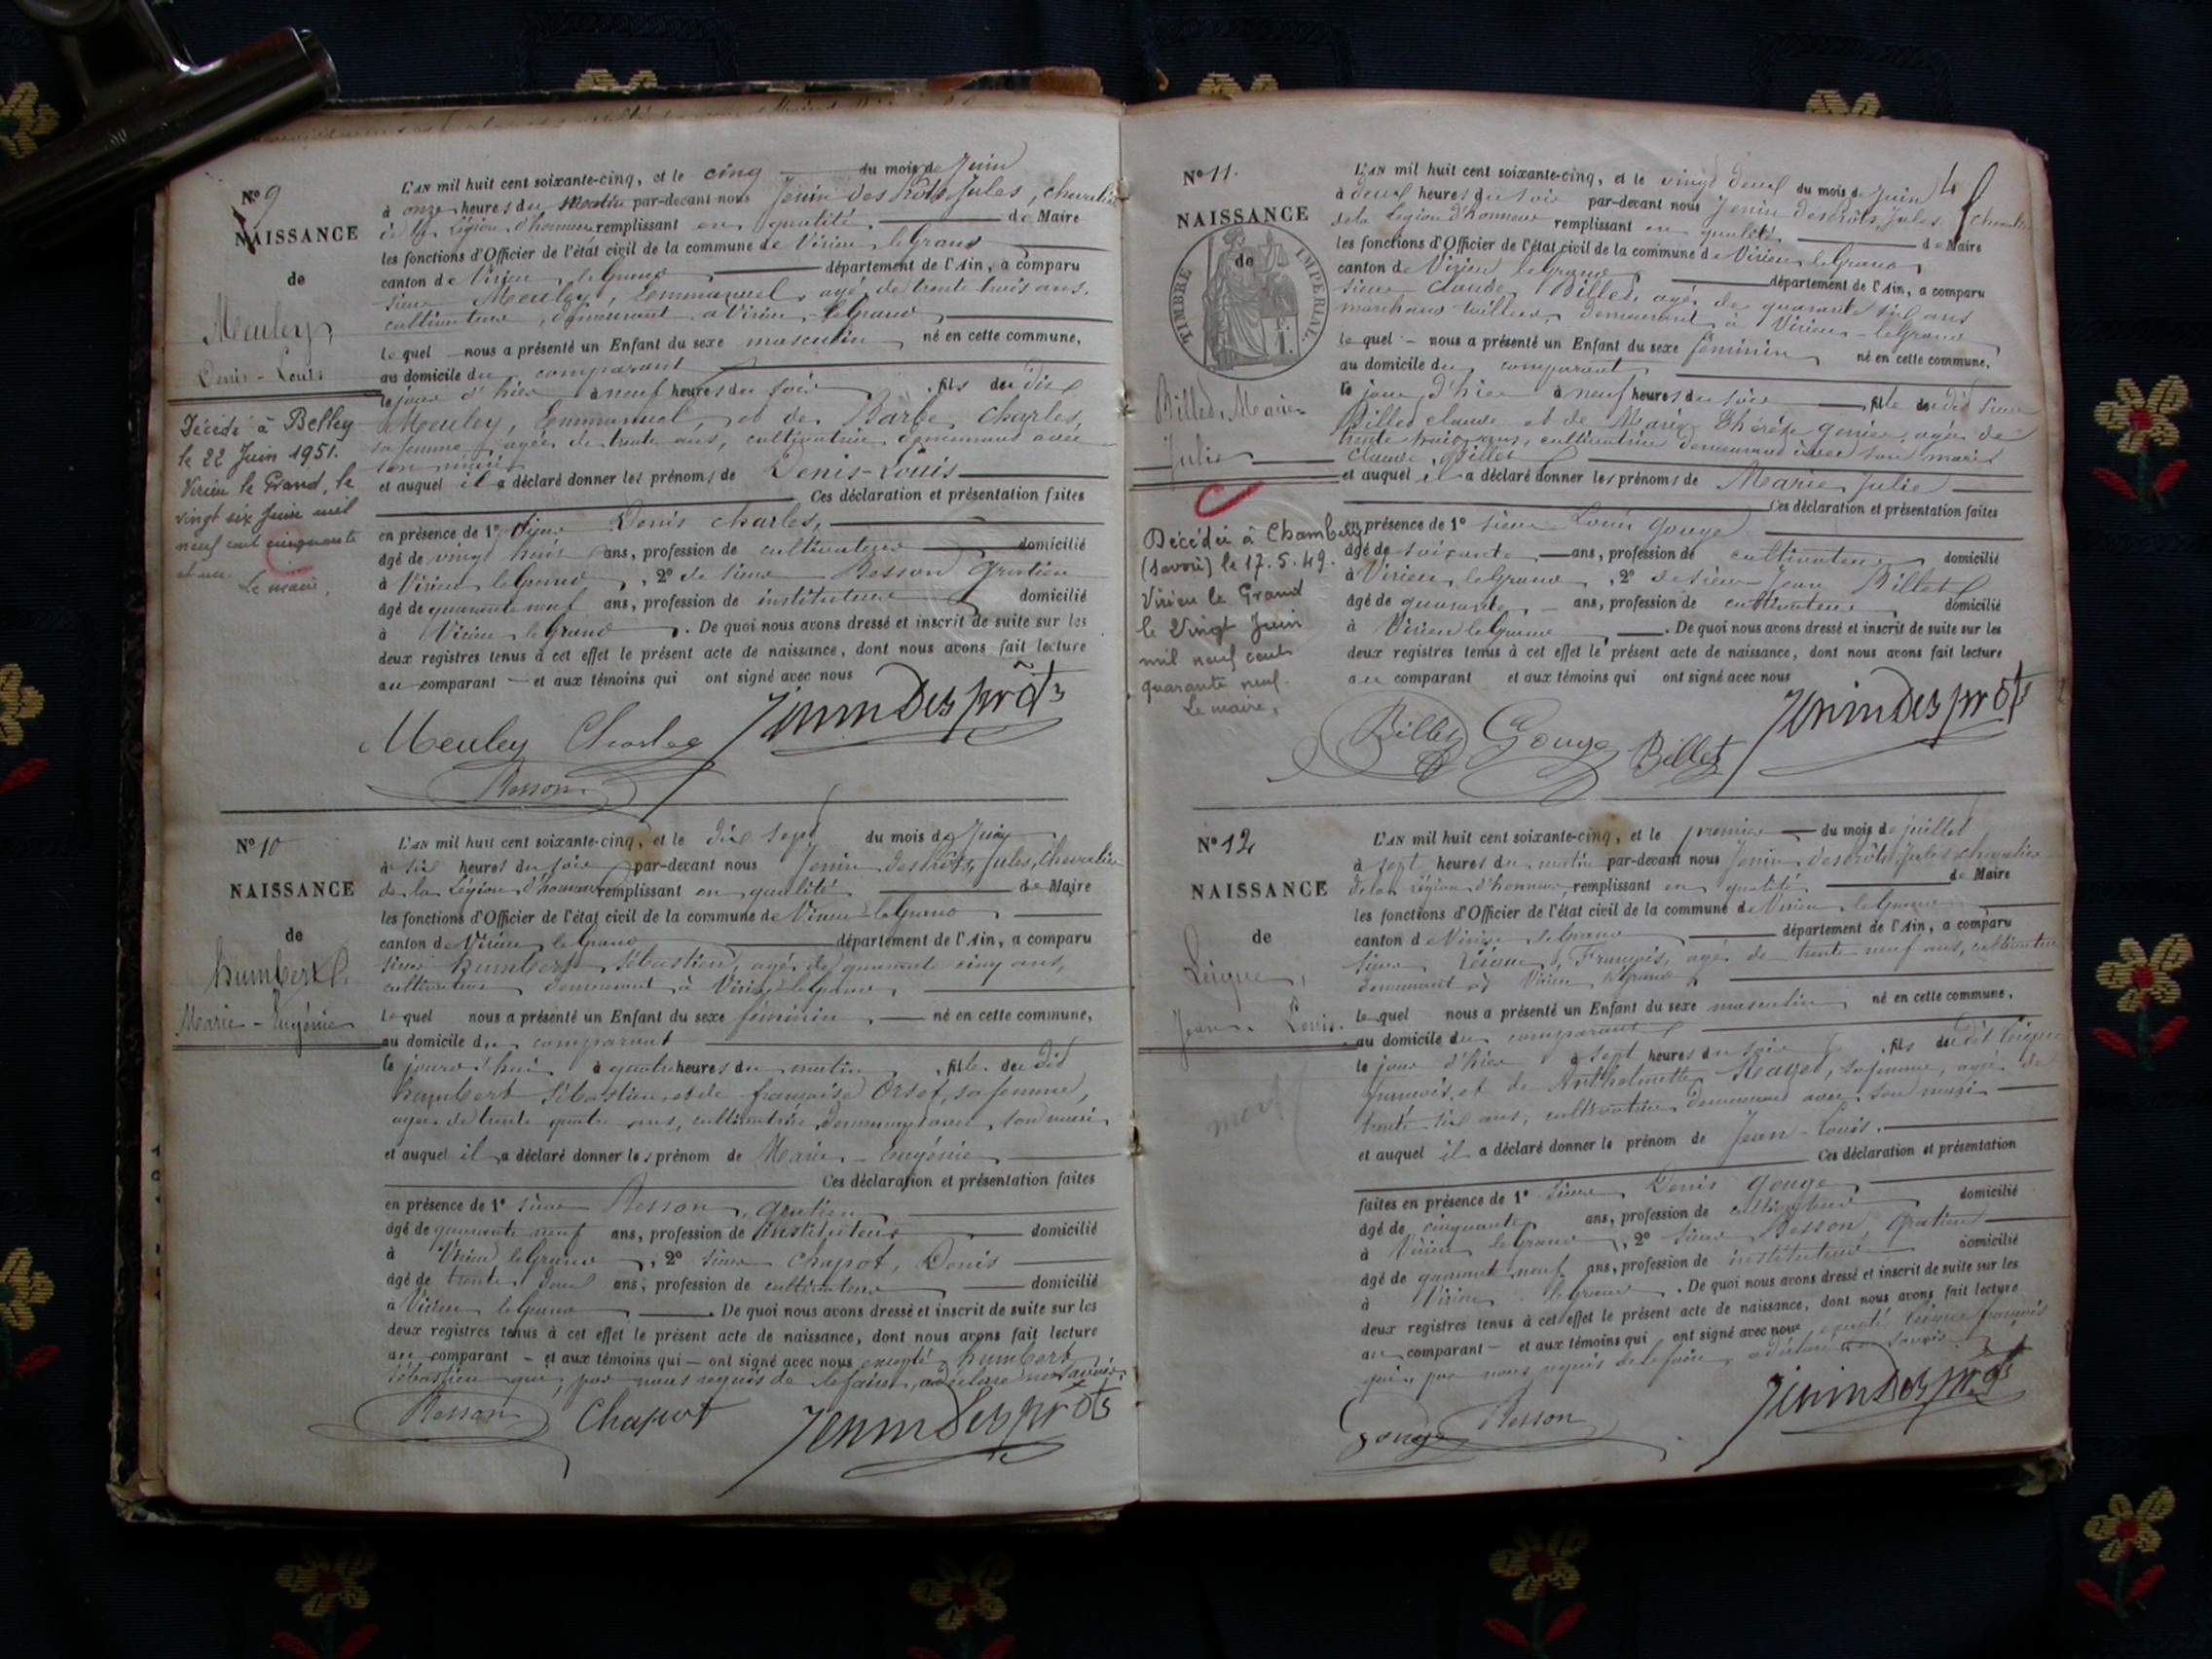 N° 9
NAISSANCE
de
Meuley,
Denis-Louis
Décédé à Belley
le 22 Juin 1951.
Virieu le Grand, le
vingt six Juin mil
neuf cent cinquante
et un.
Le maire,
L'AN mil huit cent soixante-cinq, et le cinq du mois de Juin
à onze heures du matin par-devant nous Jenin des Prôts, Jules, chevalier
de la Légion d'honneur remplissant en qualité de Maire
les fonctions d'Officier de l'état civil de la commune de Virieu le Grand
canton de Virieu le Grand département de l'Ain, a comparu
sieur Meuley, Emmanuel, agé de trente trois ans,
cultivateur, demeurant à Virieu-le Grand
lequel nous a présenté un Enfant du sexe masculin né en cette commune,
au domicile du comparant
le jour d'hier à neuf heures du soir, fils du dit
Meuley, Emmanuel, et de Barbe Charles,
sa femme, agée de trente ans, cultivatrice demeurant avec
son mari
et auquel il a déclaré donner les prénoms de Denis-Louis
Ces déclaration et présentation faites
en présence de 1° sieur Denis Charles,
âgé de vingt trois ans, profession de cultivateur domicilié
à Virieu le Grand, 2° de sieur Besson Gratien
âgé de quarante neuf ans, profession de instituteur domicilié
à Virieu le Grand. De quoi nous avons dressé et inscrit de suite sur les
deux registres tenus à cet effet le présent acte de naissance, dont nous avons fait lecture
au comparant et aux témoins qui ont signé avec nous
Meuley Charles JeninDesprôts
Besson
N° 10
NAISSANCE
de
humbert
Marie-Eugénie
L'AN mil huit cent soixante-cinq, et le dix sept du mois de Juin
à six heures du soir par-devant nous Jenin des Prôts, Jules, Chevalier
de la Légion d'honneur remplissant en qualité de Maire
les fonctions d'Officier de l'état civil de la commune de Virieu-le Grand
canton de Virieu le Grand département de l'Ain, a comparu
sieur humbert Sébastien, agé de quarante cinq ans,
cultivateur demeurant à Virieu-le Grand,
lequel nous a présenté un Enfant du sexe féminin, né en cette commune,
au domicile du comparant
le jourd'hui à quatre heures du matin, fille du dit
humbert Sébastien et de françoise Orset, sa femme,
agée de trente quatre ans, cultivatrice demeurant avec son mari
et auquel il a déclaré donner les prénom de Marie-Eugénie
Ces déclaration et présentation faites
en présence de 1° sieur Besson, Gratien
âgé de quarante neuf ans, profession de Instituteur domicilié
à Virieu le Grand, 2° sieur Chapot, Denis
âgé de trente deux ans, profession de cultivateur domicilié
à Virieu le Grand. De quoi nous avons dressé et inscrit de suite sur les
deux registres tenus à cet effet le présent acte de naissance, dont nous avons fait lecture
au comparant - et aux témoins qui - ont signé avec nous excepté humbert
Sébastien qui, par nous requis de le faire, a déclaré ne savoir.
Besson Chapot JeninDesprôts
N° 11.
NAISSANCE
de
TIMBRE IMPERIAL.
Billet, Marie
Julie
Décédée à Chambéry
(Savoie) le 17.5.49.
Virieu le Grand
le Vingt Juin
mil neuf cent
quarante neuf.
Le maire,
L'AN mil huit cent soixante-cinq, et le vingt deux du mois de Juin
à deux heures du soir par-devant nous Jenin desPrôts, Jules, chevalier
de la Légion d'honneur remplissant en qualité de Maire
les fonctions d'Officier de l'état civil de la commune de Virieu le Grand
canton de Virieu le Grand département de l'Ain, a comparu
sieur Claude Billet, agé de quarante six ans
marchand tailleur, demeurant à Virieu-le Grand
lequel - nous a présenté un Enfant du sexe féminin né en cette commune,
au domicile du comparant
le jour d'hier à neuf heures du soir, fille du dit sieur
Billet claude et de Marie Thérèse, agée de
trente trois ans, cultivatrice demeurant avec son mari
Claude Billet
et auquel il a déclaré donner les prénoms de Marie Julie
Ces déclaration et présentation faites
en présence de 1° sieur Louis Gouge
âgé de soixante ans, profession de cultivateur domicilié
à Virieu le Grand, 2° de sieur Jean Billet
âgé de quarante, ans, profession de cultivateur domicilié
à Virieu le Grand. De quoi nous avons dressé et inscrit de suite sur les
deux registres tenus à cet effet le présent acte de naissance, dont nous avons fait lecture
au comparant et aux témoins qui ont signé avec nous
Billet Gouge Billet JeninDesprôts
N° 12
NAISSANCE
de
Leigue,
Jean-Louis.
mort
L'AN mil huit cent soixante-cinq, et le premier du mois de juillet
à sept heures du matin par-devant nous Jenin desPrôts, Jules chevalier
de la Légion d'honneur remplissant en qualité de Maire
les fonctions d'Officier de l'état civil de la commune de Virieu le Grand
canton de Virieu le Grand département de l'Ain, a comparu
sieur Leigue, François, agé de trente neuf ans, cultivateur
demeurant à Virieu le Grand
lequel nous a présenté un Enfant du sexe masculin né en cette commune,
au domicile du comparant
le jour d'hier à sept heures du soir, fils du dit Leigue
françois, et de Anthelmette, sa femme, agée de
trente six ans, cultivatrice demeurant avec son mari
et auquel il a déclaré donner le prénom de Jean-Louis.
Ces déclaration et présentation
faites en présence de 1° sieur Denis Gouge
âgé de cinquante ans, profession de cultivateur domicilié
à Virieu le Grand, 2° sieur Besson Gratien
âgé de quarante neuf ans, profession de instituteur domicilié
à Virieu le Grand. De quoi nous avons dressé et inscrit de suite sur les
deux registres tenus à cet effet le présent acte de naissance, dont nous avons fait lecture
au comparant - et aux témoins qui ont signé avec nous excepté Leigue françois
qui, par nous requis de le faire, a déclaré ne savoir.
Gouge Besson JeninDesprôts